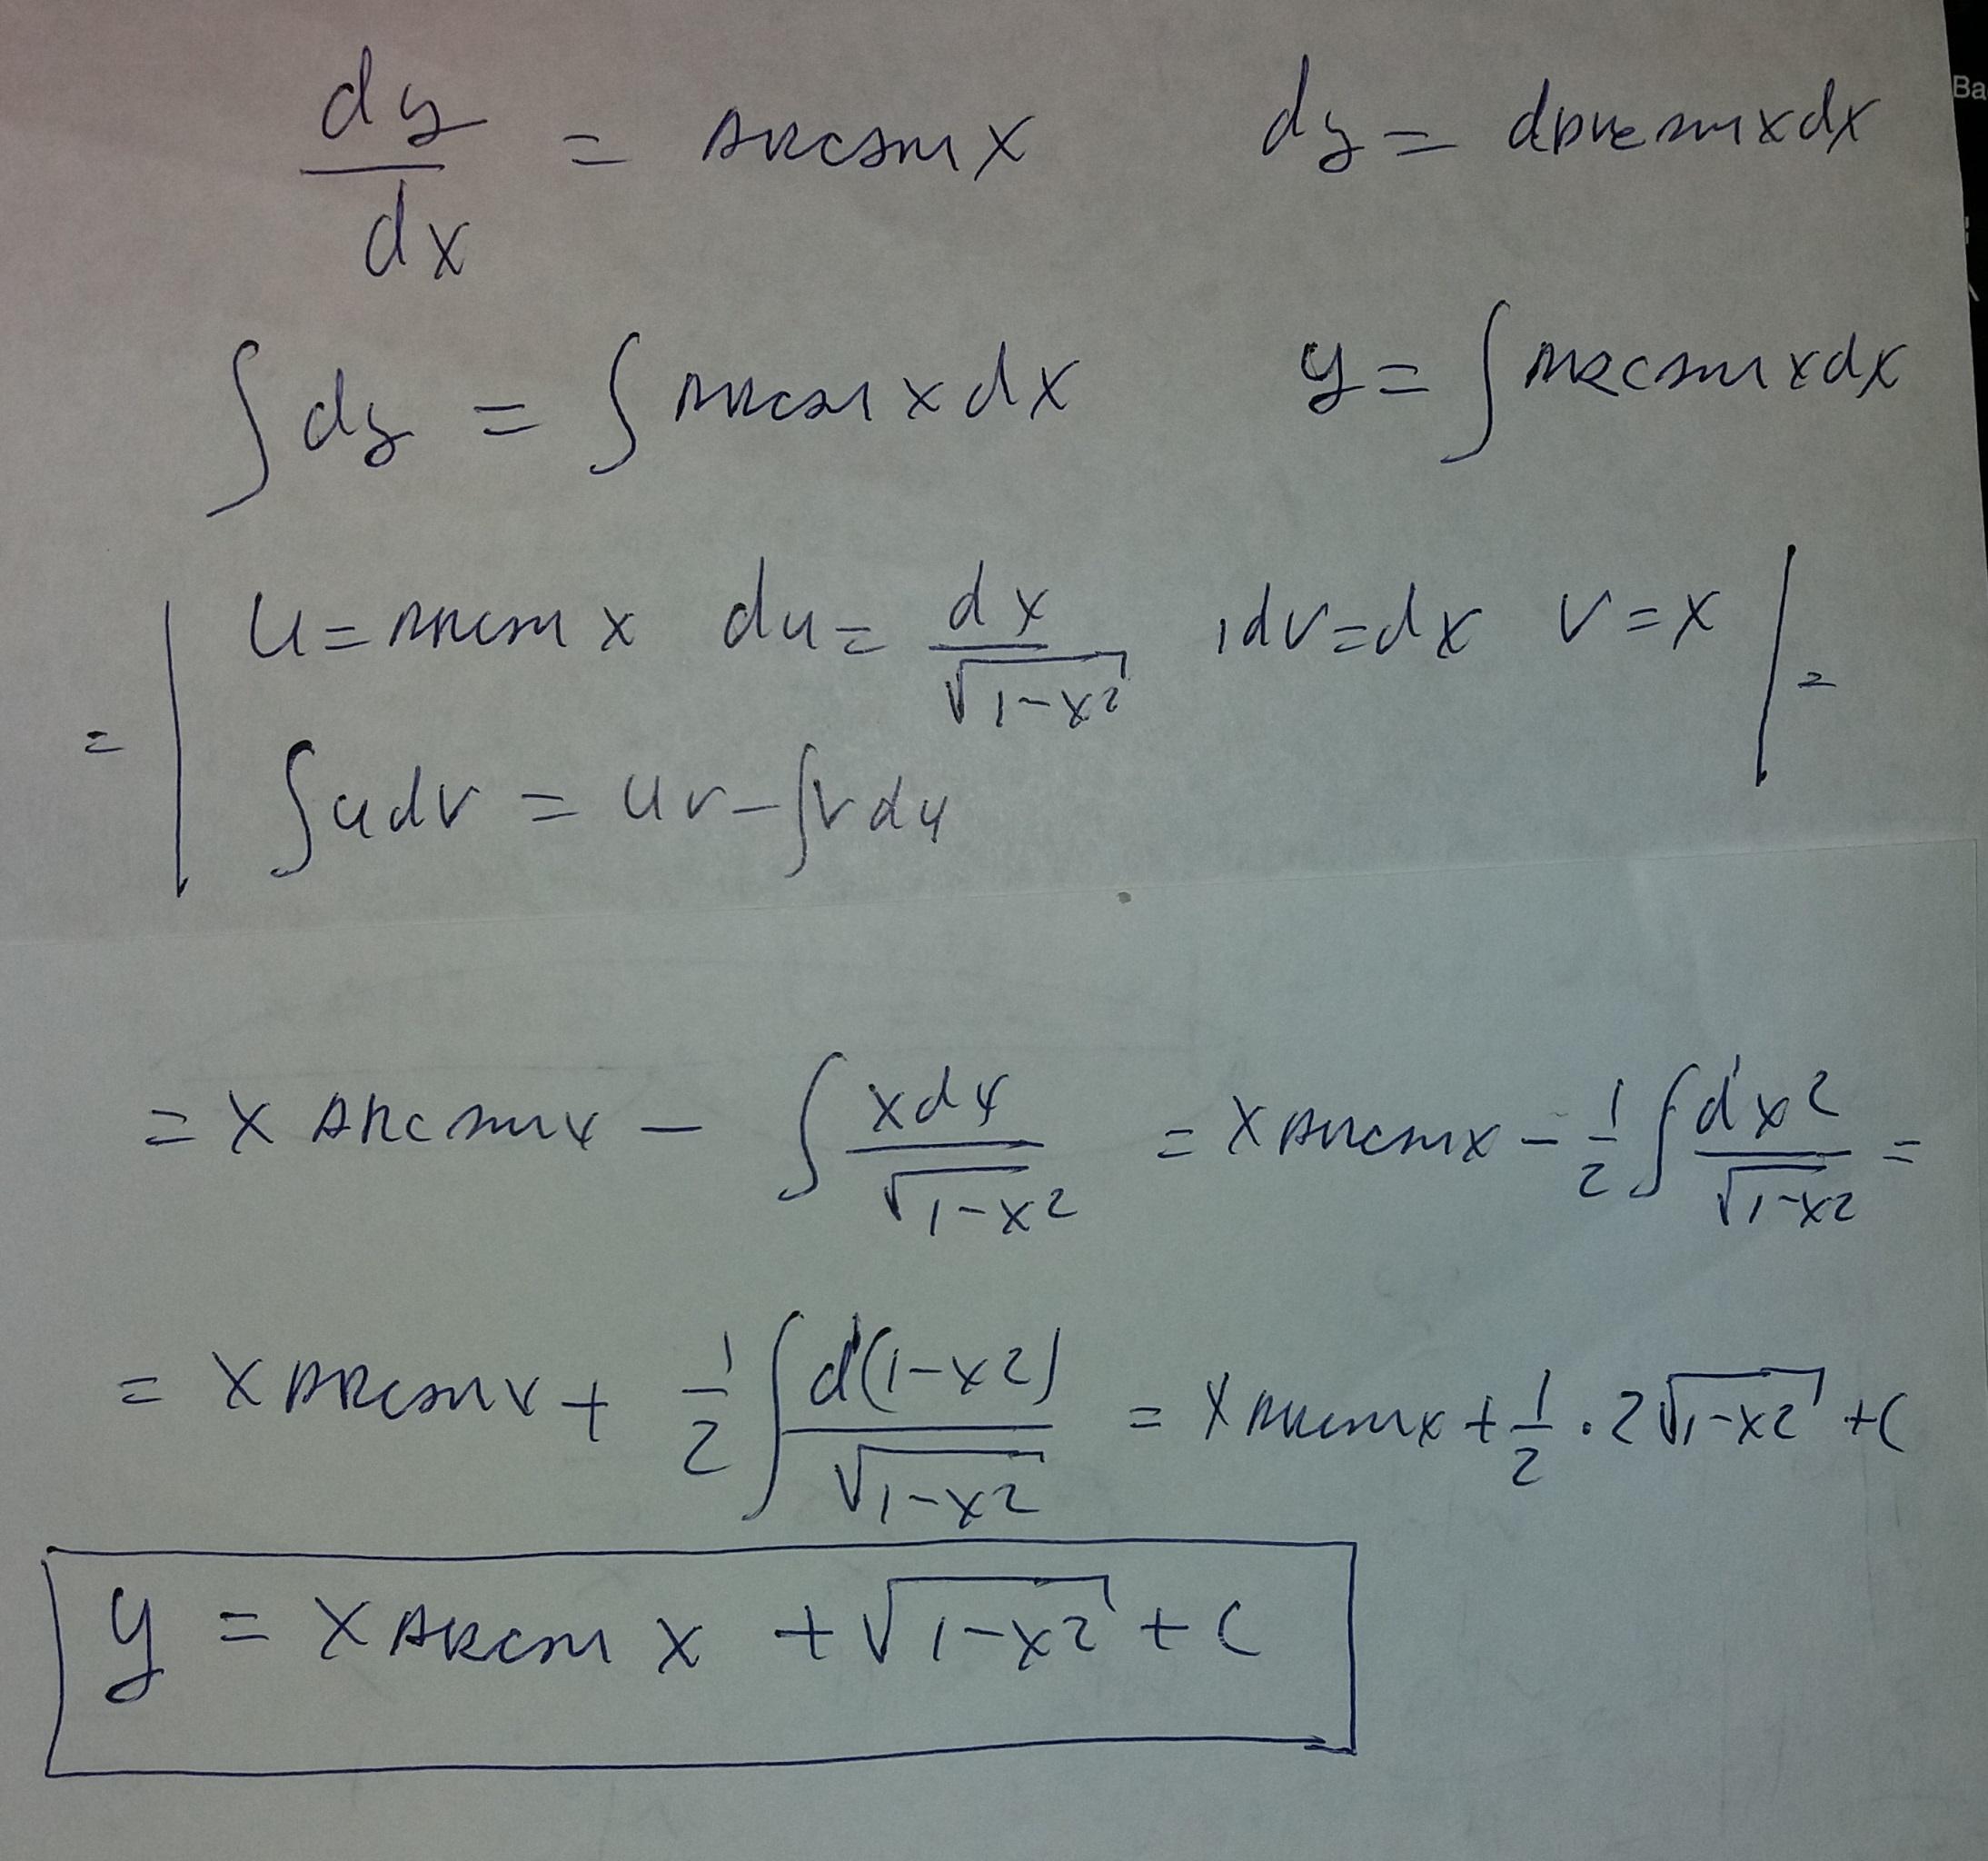 dy/dx = arcsin x dy = darcsin x dx
∫ dy = ∫ arcsin x dx y = ∫ arcsin x dx
= | u = arcsin x du = dx/√(1-x²) , dv = dx v = x | =
∫ u dv = uv - ∫ v du
= x arcsin x - ∫ x dx/√(1-x²) = x arcsin x - 1/2 ∫ dx²/√(1-x²) =
= x arcsin x + 1/2 ∫ d(1-x²)/√(1-x²) = x arcsin x + 1/2 · 2√(1-x²) + C
y = x arcsin x + √(1-x²) + C
Ba